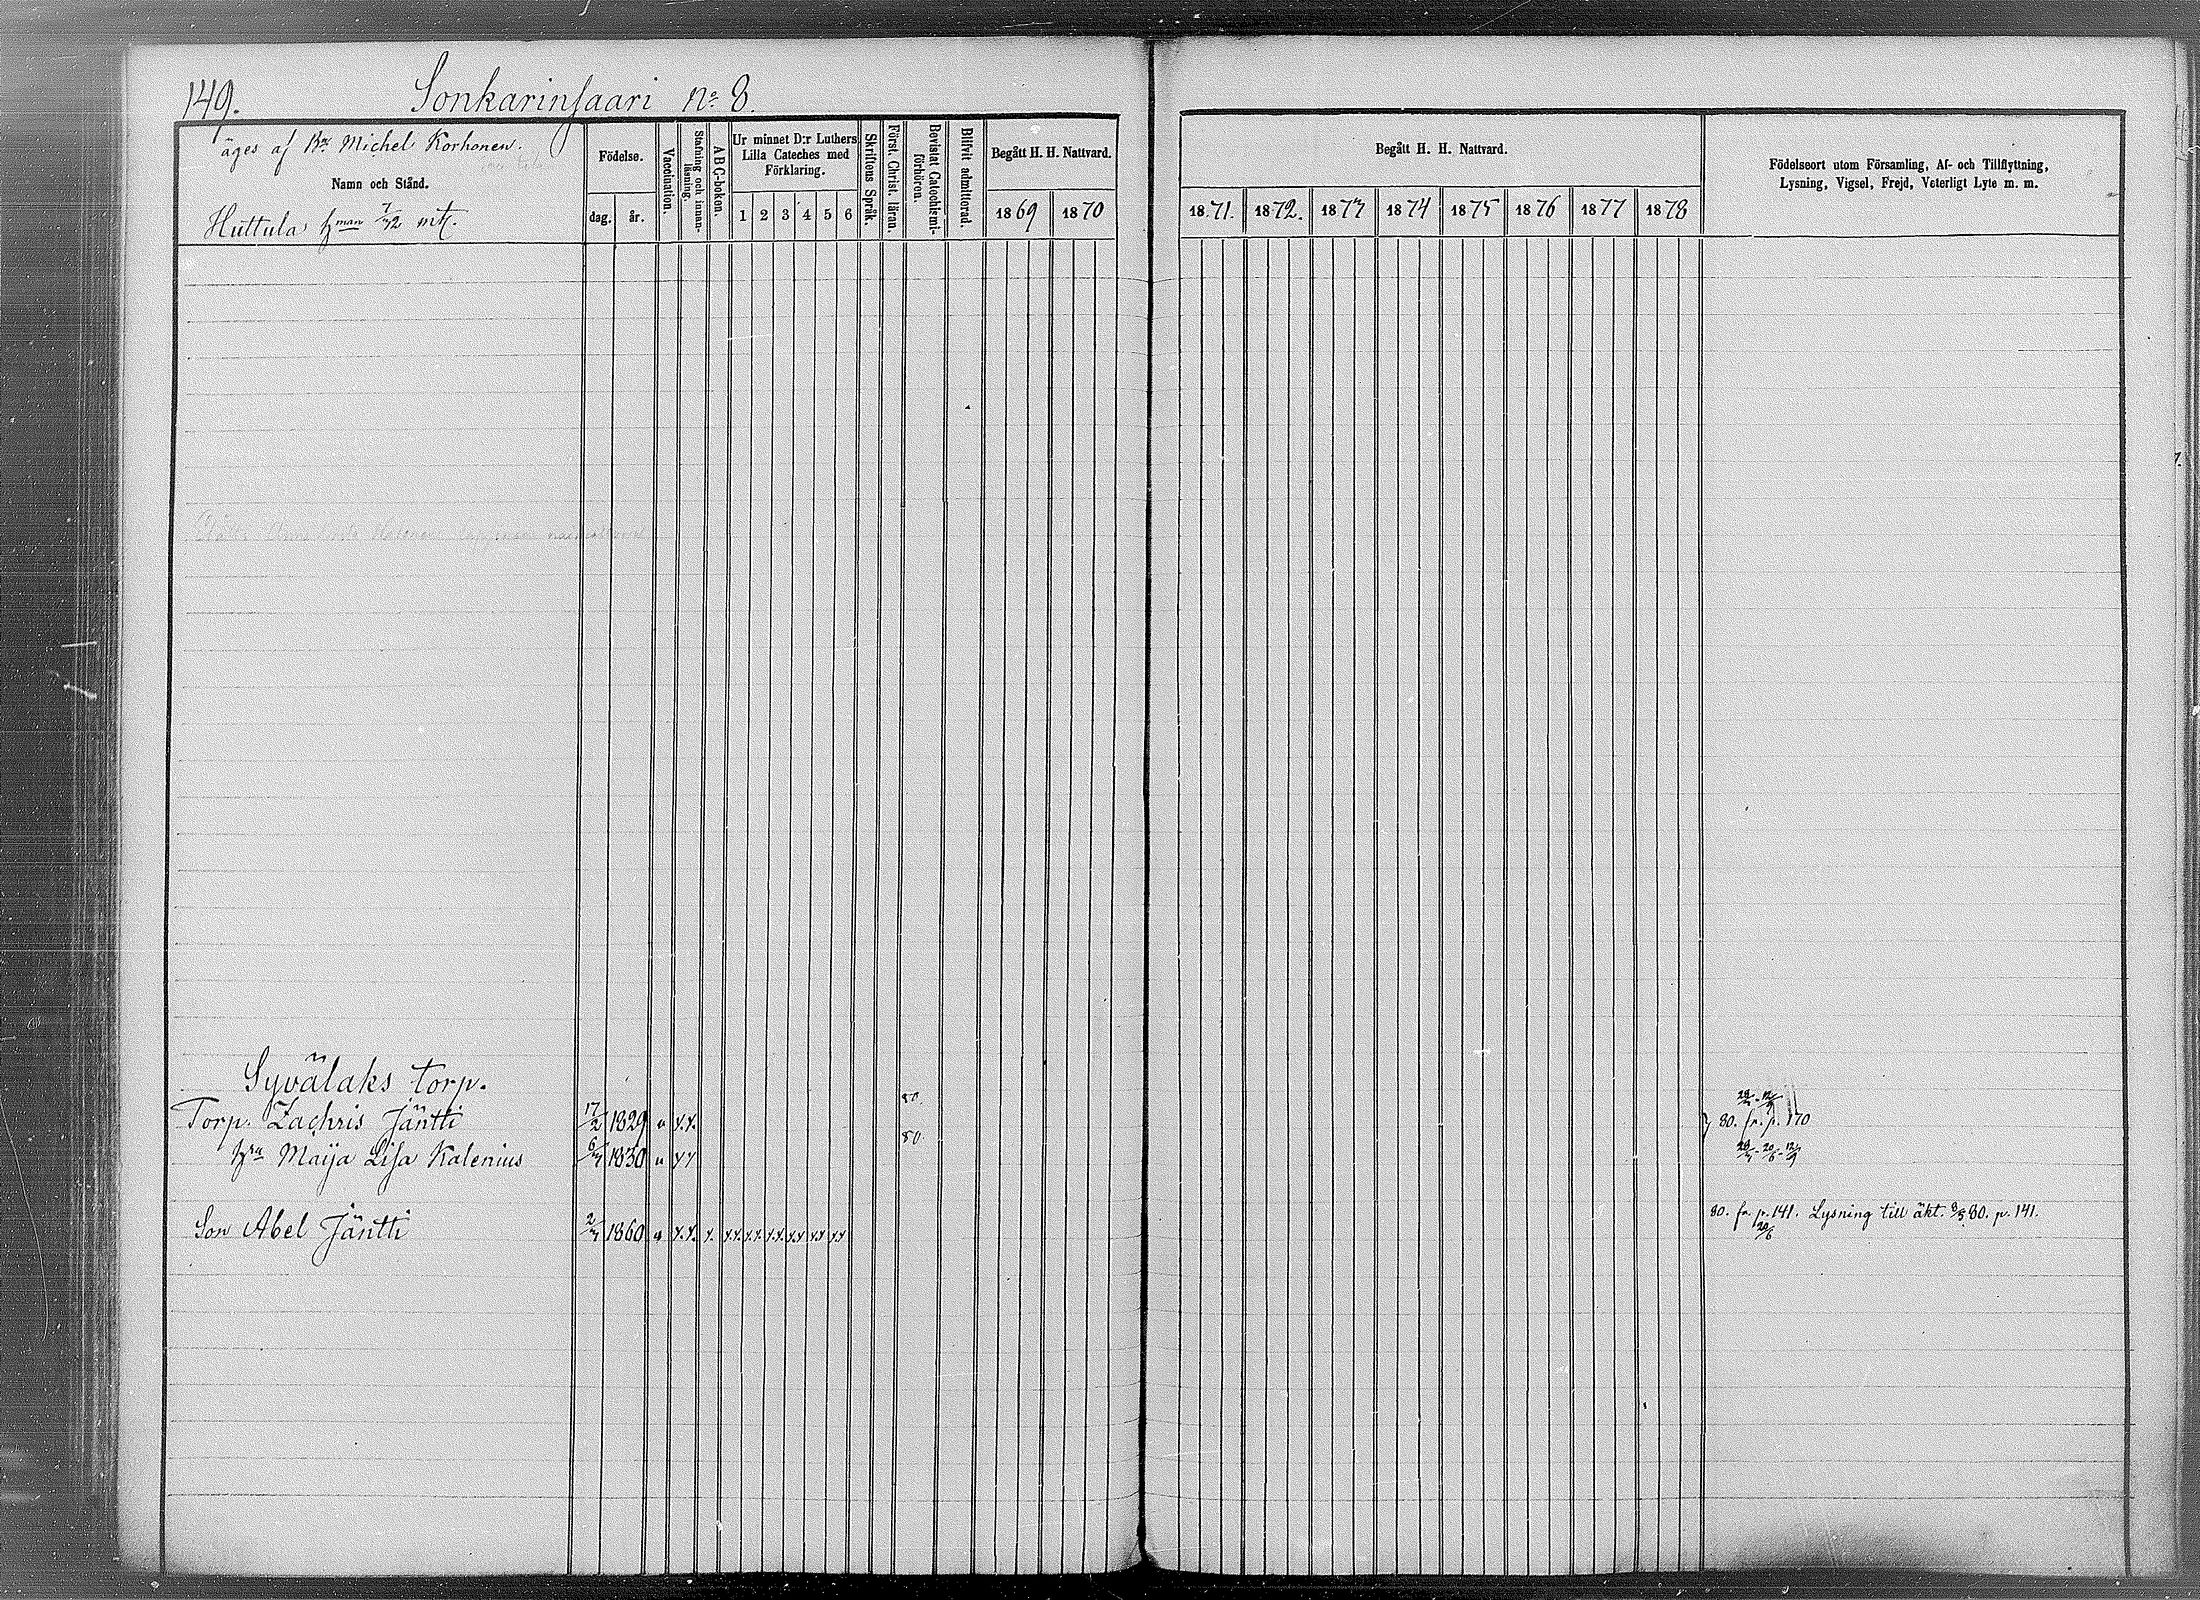 149. Sonkarinsaari No 8.
äges af Bn Michel Korhonen.
Namn och Stånd.
Huttula hman 7/72 mtl.
Födelse.
dag. år.
Vaccination.
Stafning och innanläsning.
A B C-boken.
Ur minnet D:r Luthers Lilla Cateches med Förklaring.
1 2 3 4 5 6
Skriftens Språk.
Först. Christ. läran.
Bevistat Catechismi-förhören.
Blifvit admitterad.
Begått H. H. Nattvard.
1869 1870
Begått H. H. Nattvard.
1871. 1872. 1873 1874 1875 1876 1877 1878
Födelseort utom Församling, Af- och Tillflyttning,
Lysning, Vigsel, Frejd, Veterligt Lyte m. m.
Syvälaks torp.
Torp. Zachris Jäntti 17/2 1829 80. 80. fr. p. 170
hru Maija Lisa Kalenius 1830 80
Son Abel Jäntti 1860 80. fr. p. 141. Lysning till äkt. 80. p. 141.
20/6